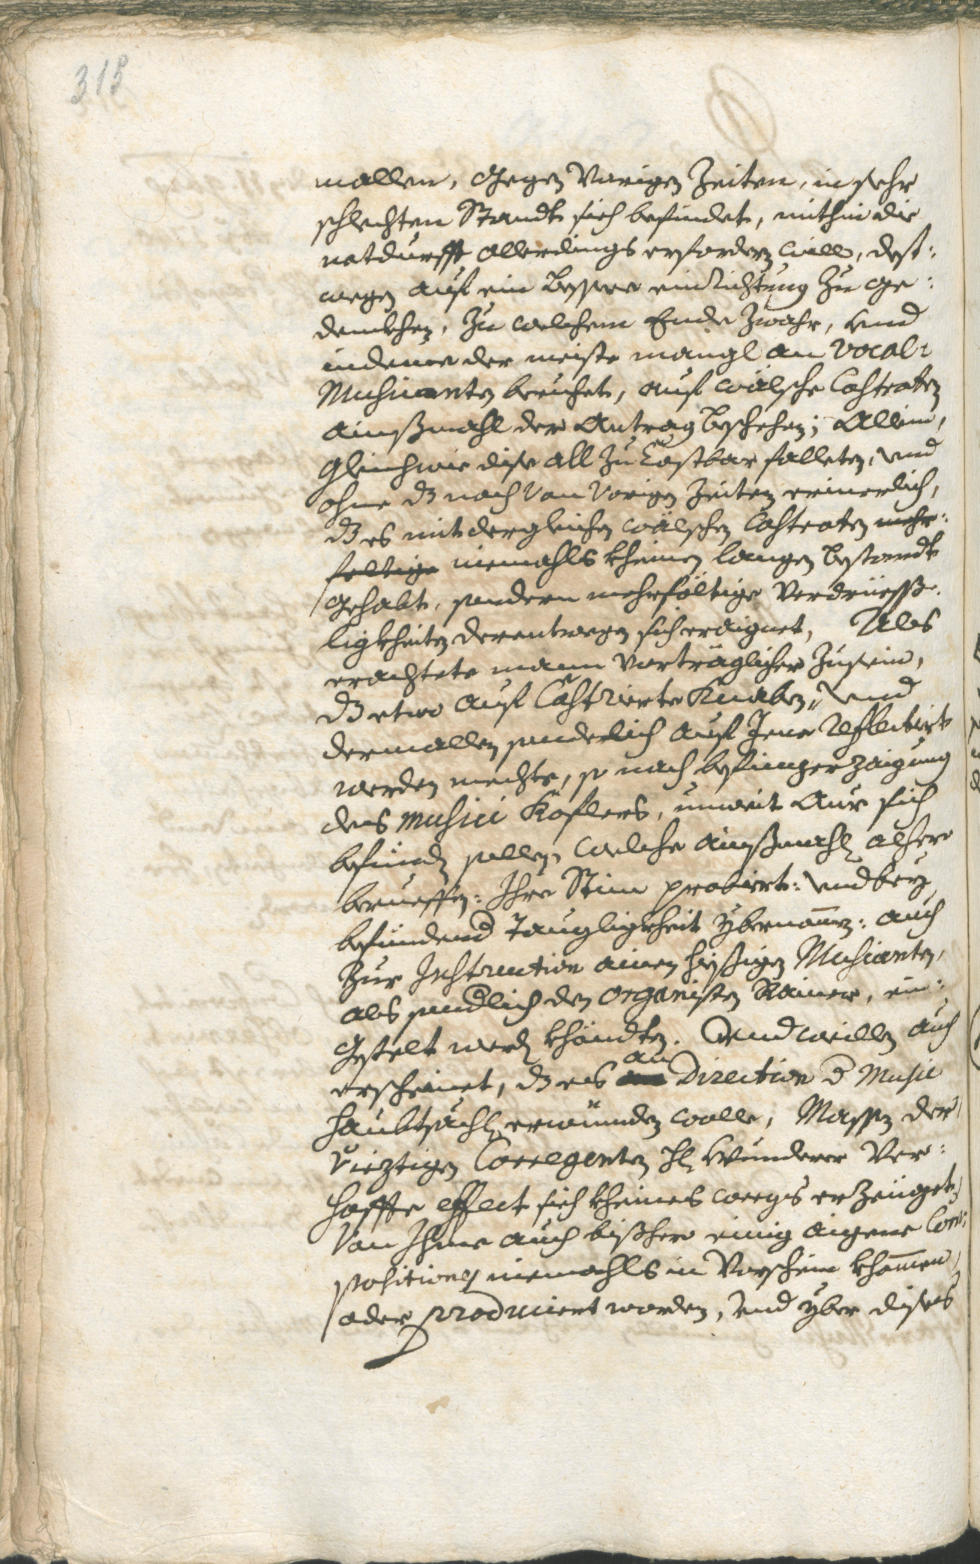 318
mallen, gegen Vorigen Zeiten, in sehr
schlechten Standt sich befindet, mithin die
notdurfft allerdings erfordern will, dest-
wegen auf ein bessere einrichtung zu ge-
denckhen, Zu welchem Ende zwahr, und
indeme der meiste mangl an vocal-
Musicanten beruehet, auf wälsche Castraten
ainßmahl der Antrag beschehen; Allein,
gleichwie dise all zu Costbar falleten, und
ohne dz noch Von Vorigen Zeiten erinerlich,
dz es mit dergleichen wälschen Castraten mehr-
feltige niemahls kheinen langen bestandt
gehabt, sondern mehrfältige Verdrüeß-
ligkheiten derentwegen sich eraignet, Als
erachtete mann Vorträglicher zu sein,
dz etwo auf Castrierte Knaben, und
dermallen sonderlich auf Jene reflectirt
werden mechte, so nach besinger zaigung
des Musici Koflers, unweit Aur sich
befinden sollen, welche ainßmahls alher
berueffen: Ihre Stim probiert: und bey
befindend Taugligkheit ybernomen: auch
zur Instruction ainen hießigen Musicanten,
als sondlich den Organisten Rainer, ein-
gestelt werden khöndten. Und weillen auch
erscheinet, dz es an Direction d Music
haubtsächl. erwinden wolle, Massen der
Vieztigen Corregenten Hl. Wunderer Ver-
hoffte effect sich kheines weegs erzeiget,
Von Ihme auch bißhero einig aigene Com-
positiones niemahls in Vorschein khommen,
oder produciert worden, und yber dises